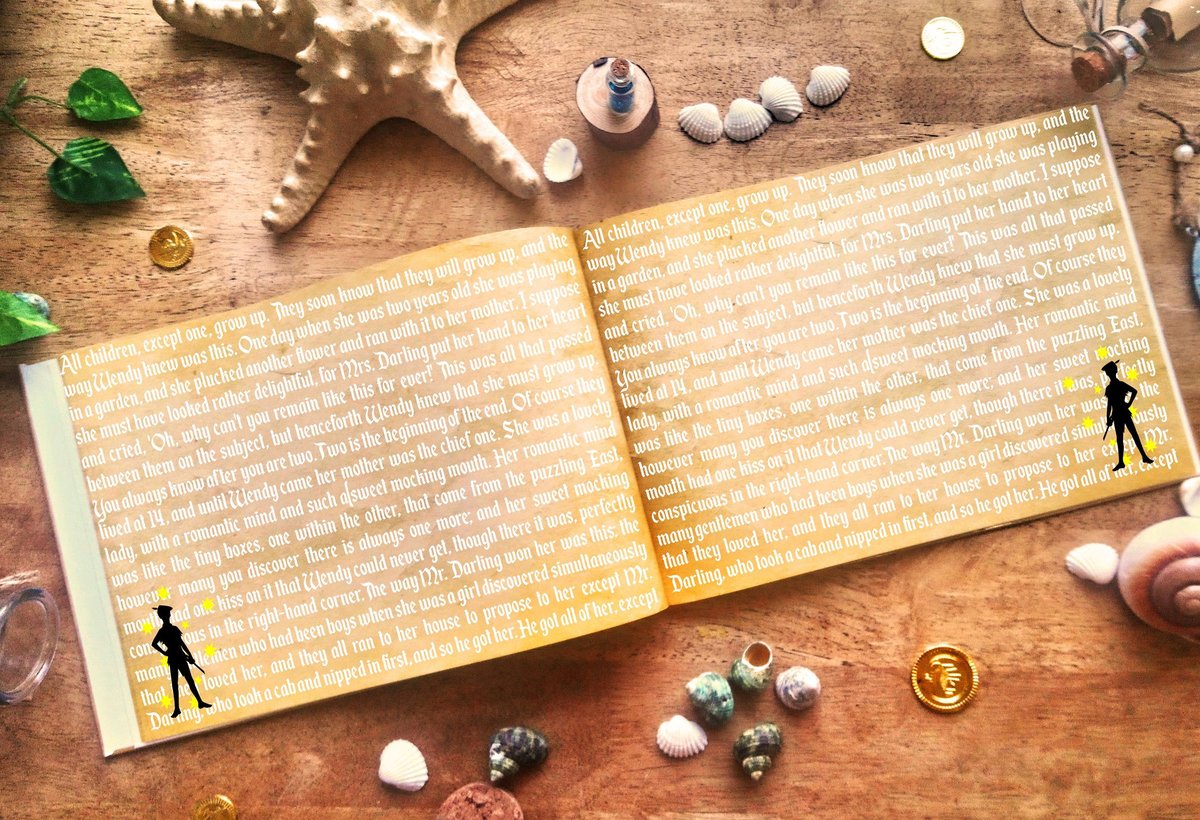 All children, except one, grow up. They soon know that they will grow up, and the
way Wendy knew was this. One day when she was two years old she was playing
in a garden, and she plucked another flower and ran with it to her mother. I suppose
she must have looked rather delightful, for Mrs. Darling put her hand to her heart
and cried, 'Oh, why can't you remain like this for ever!' This was all that passed
between them on the subject, but henceforth Wendy knew that she must grow up.
You always know after you are two. Two is the beginning of the end. Of course they
lived at 14, and until Wendy came her mother was the chief one. She was a lovely
lady, with a romantic mind and such a|sweet mocking mouth. Her romantic mind
was like the tiny boxes, one within the other, that come from the puzzling East,
however many you discover there is always one more; and her sweet mocking
one kiss on it that Wendy could never get, though there it was, perfectly
in the right-hand corner. The way Mr. Darling won her was this: the
many gentlemen who had been boys when she was a girl discovered simultaneously
that they loved her, and they all ran to her house to propose to her except Mr.
Darling, who took a cab and nipped in first, and so he got her. He got all of her, except
All children, except one, grow up. They soon know that they will grow up, and the
way Wendy knew was this. One day when she was two years old she was playing
in a garden, and she plucked another flower and ran with it to her mother. I suppose
she must have looked rather delightful, for Mrs. Darling put her hand to her heart
and cried, 'Oh, why can't you remain like this for ever!' This was all that passed
between them on the subject, but henceforth Wendy knew that she must grow up.
You always know after you are two. Two is the beginning of the end. Of course they
lived at 14, and until Wendy came her mother was the chief one. She was a lovely
lady, with a romantic mind and such a|sweet mocking mouth. Her romantic mind
was like the tiny boxes, one within the other, that come from the puzzling East,
however many you discover there is always one more; and her sweet mocking
mouth had one kiss on it that Wendy could never get, though there it was,
conspicuous in the right-hand corner. The way Mr. Darling won her was the
many gentlemen who had been boys when she was a girl discovered
that they loved her, and they all ran to her house to propose to her except Mr.
Darling, who took a cab and nipped in first, and so he got her. He got all of her, except